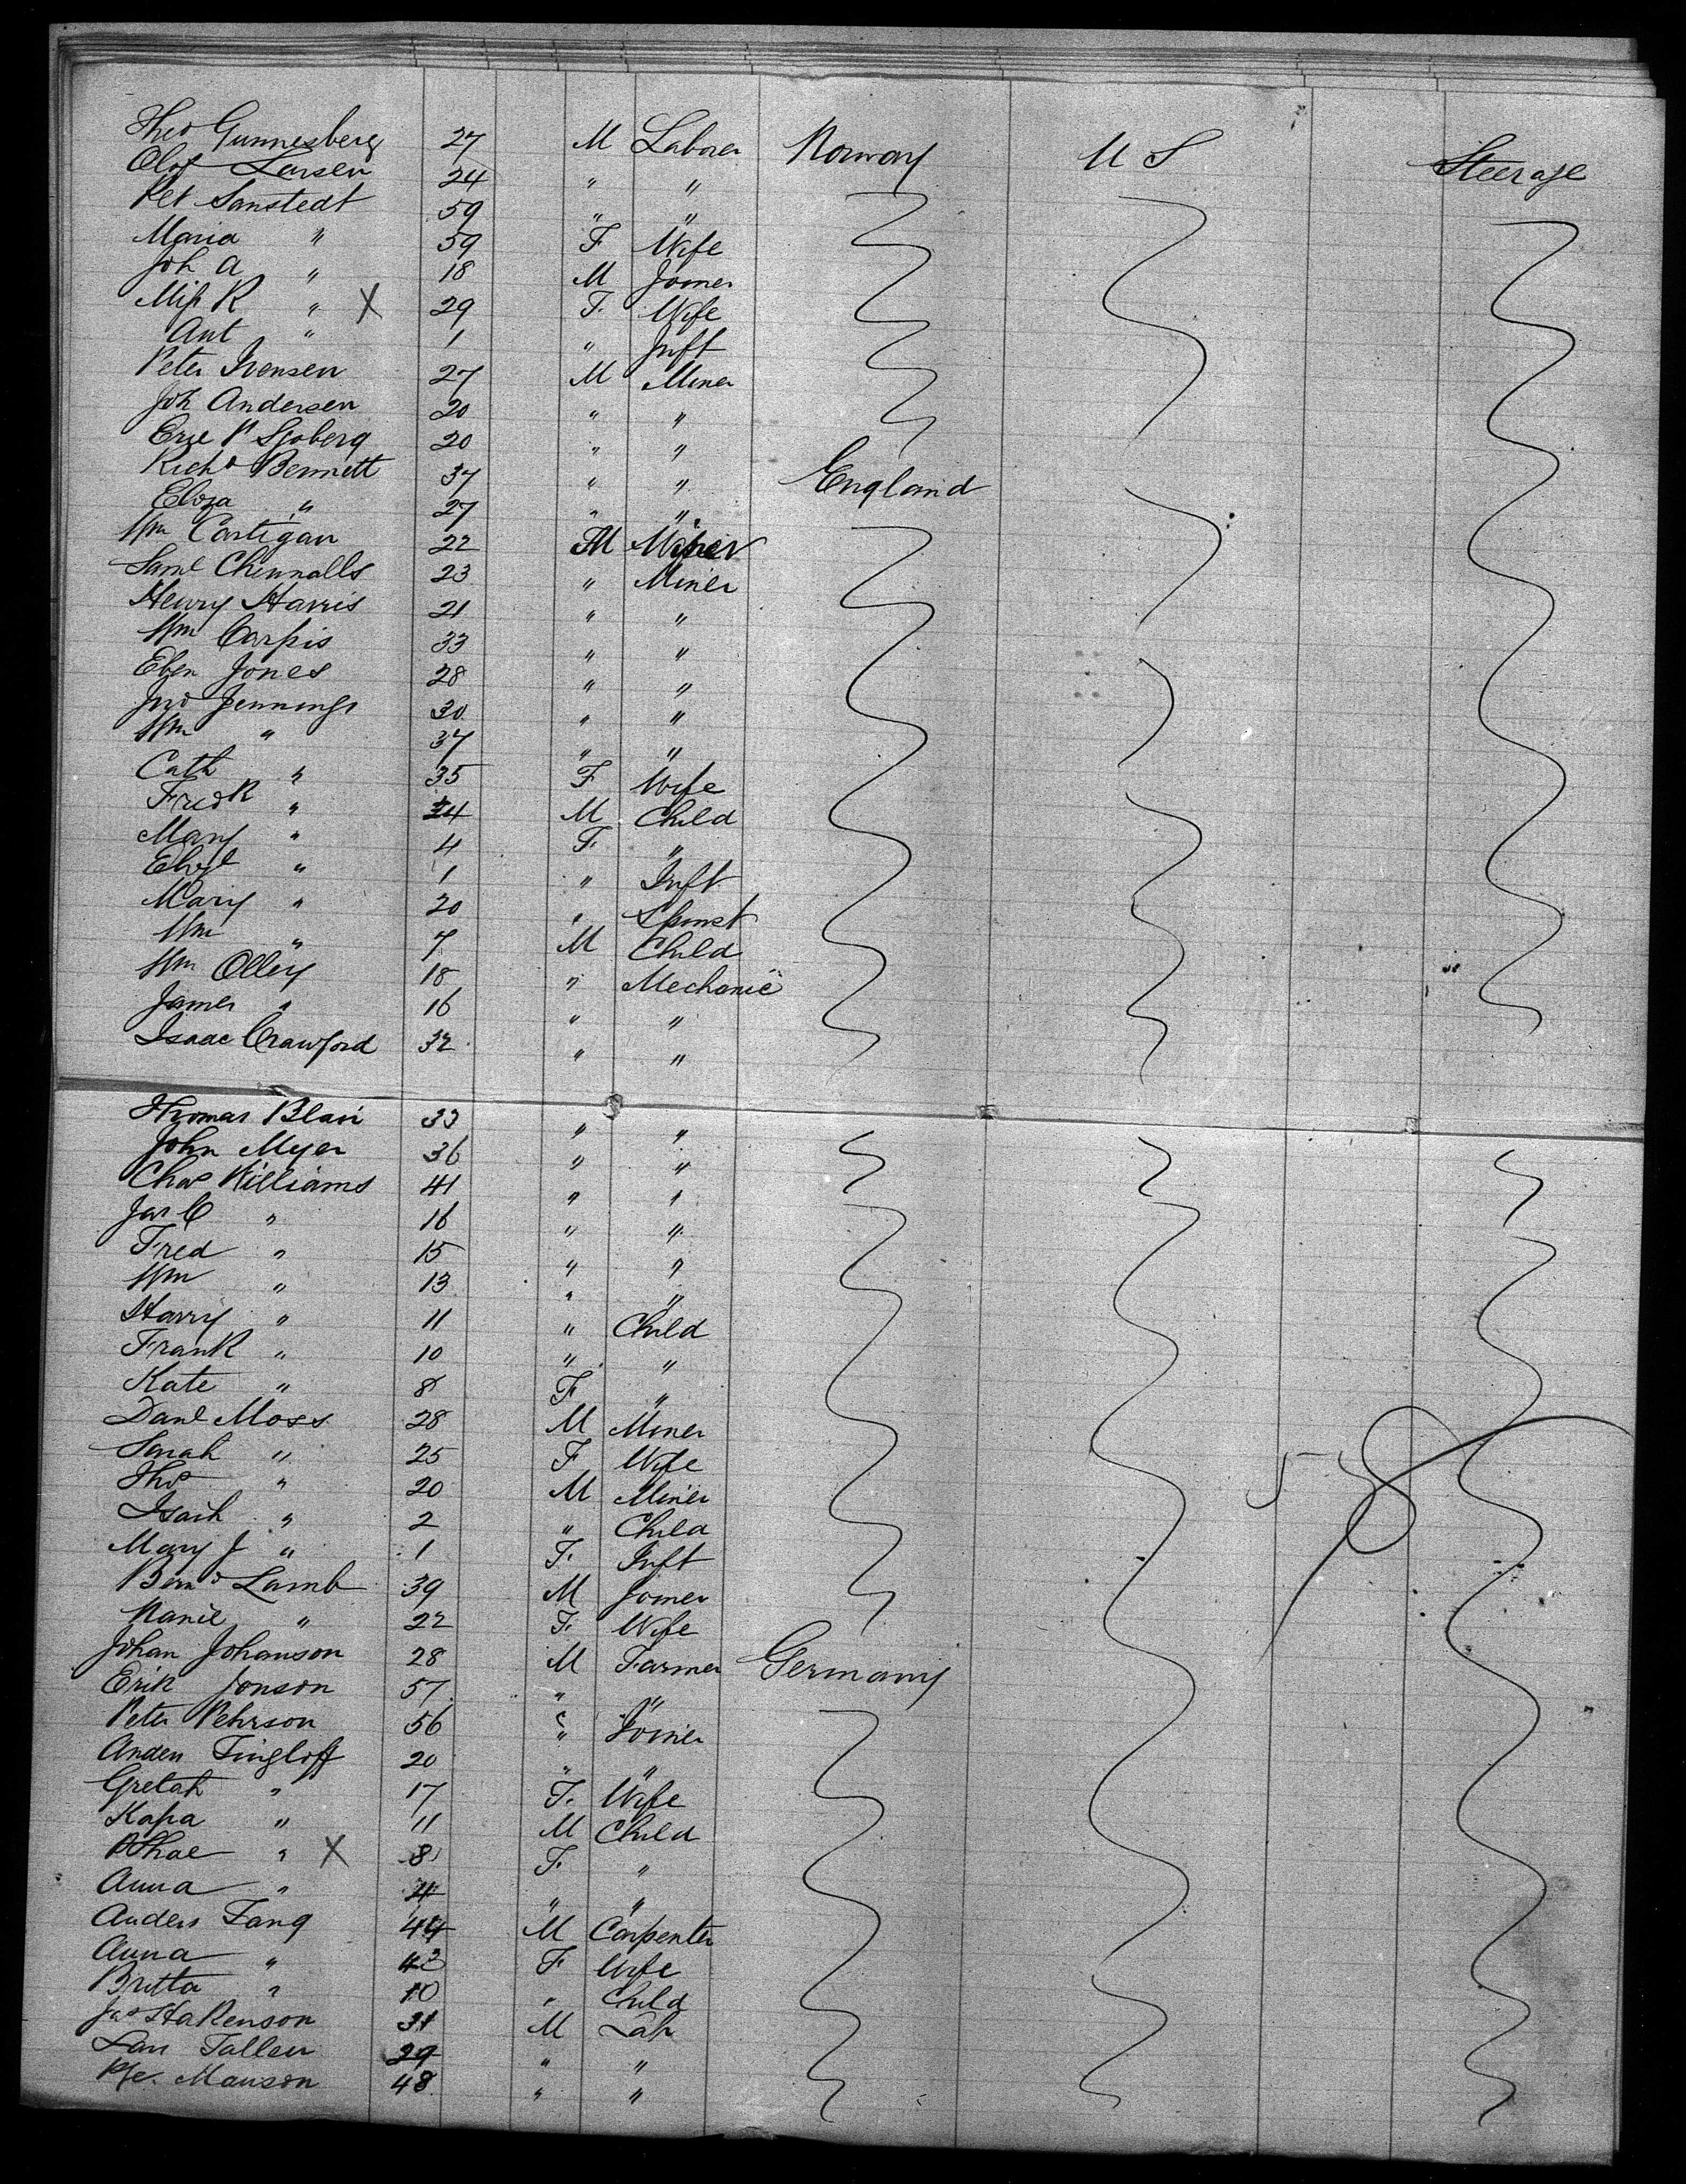 Theo Gunnesberg 27 M Laborer Norway U S Steerage
Olof Larsen 24 " "
Pet Sanstedt 59 " "
Maria " 59 F Wife
Joh A " 18 M Joiner
Miss K " X 29 F. Wife
Ant " 1 " Inft
Peter Ivensen 27 M Miner
Joh Andersen 20 " "
Eric P Sjoberg 20 " "
Richd Bennett 37 " " England
Eliza " 27 " "
Wm Costigan 22 M Miner
Saml Chinnalls 23 " Miner
Henry Harris 21 " "
Wm Carpis 33 " "
Eben Jones 28 " "
Jno Jennings 30 " "
Wm " 37 " "
Cath " 35 F Wife
Fredk " M Child
Mary " 4 F. "
Eliz " 1 " Inft
Mary " 20 " Spinst
Wm " 7 M Child
Wm Olley 18 " Mechanic
James " 16 " "
Isaac Crawford 32 " "
Thomas Blair 33 " "
John Myer 36 " "
Chas Williams 41 " "
Jas C " 16 " "
Fred " 15 " "
Wm " 13 " "
Harry " 11 " Child
Frank " 10 " "
Kate " 8 F "
Danl Moss 28 M Miner
Sarah " 25 F Wife 58
Thos " 20 M Miner
Isaih " 2 " Child
Mary J " 1 F. Inft
Bernd Lamb 39 M Joiner
Nanie " 22 F. Wife
Johan Johanson 28 M Farmer Germany
Erik Jonson 57 " "
Peter Pehrson 56 " Joiner
Anders Tingloff 20 " "
Gretah " 17 F. Wife
Kapa " 11 M Child
" X 8 F. "
Anna " 4 " "
Anders Fang 44 M Carpenter
Anna " 43 F Wife
Britta " 10 " Child
Jas Hakenson 31 M Lab
Lars Tallen 29 " "
Manson 48 " "